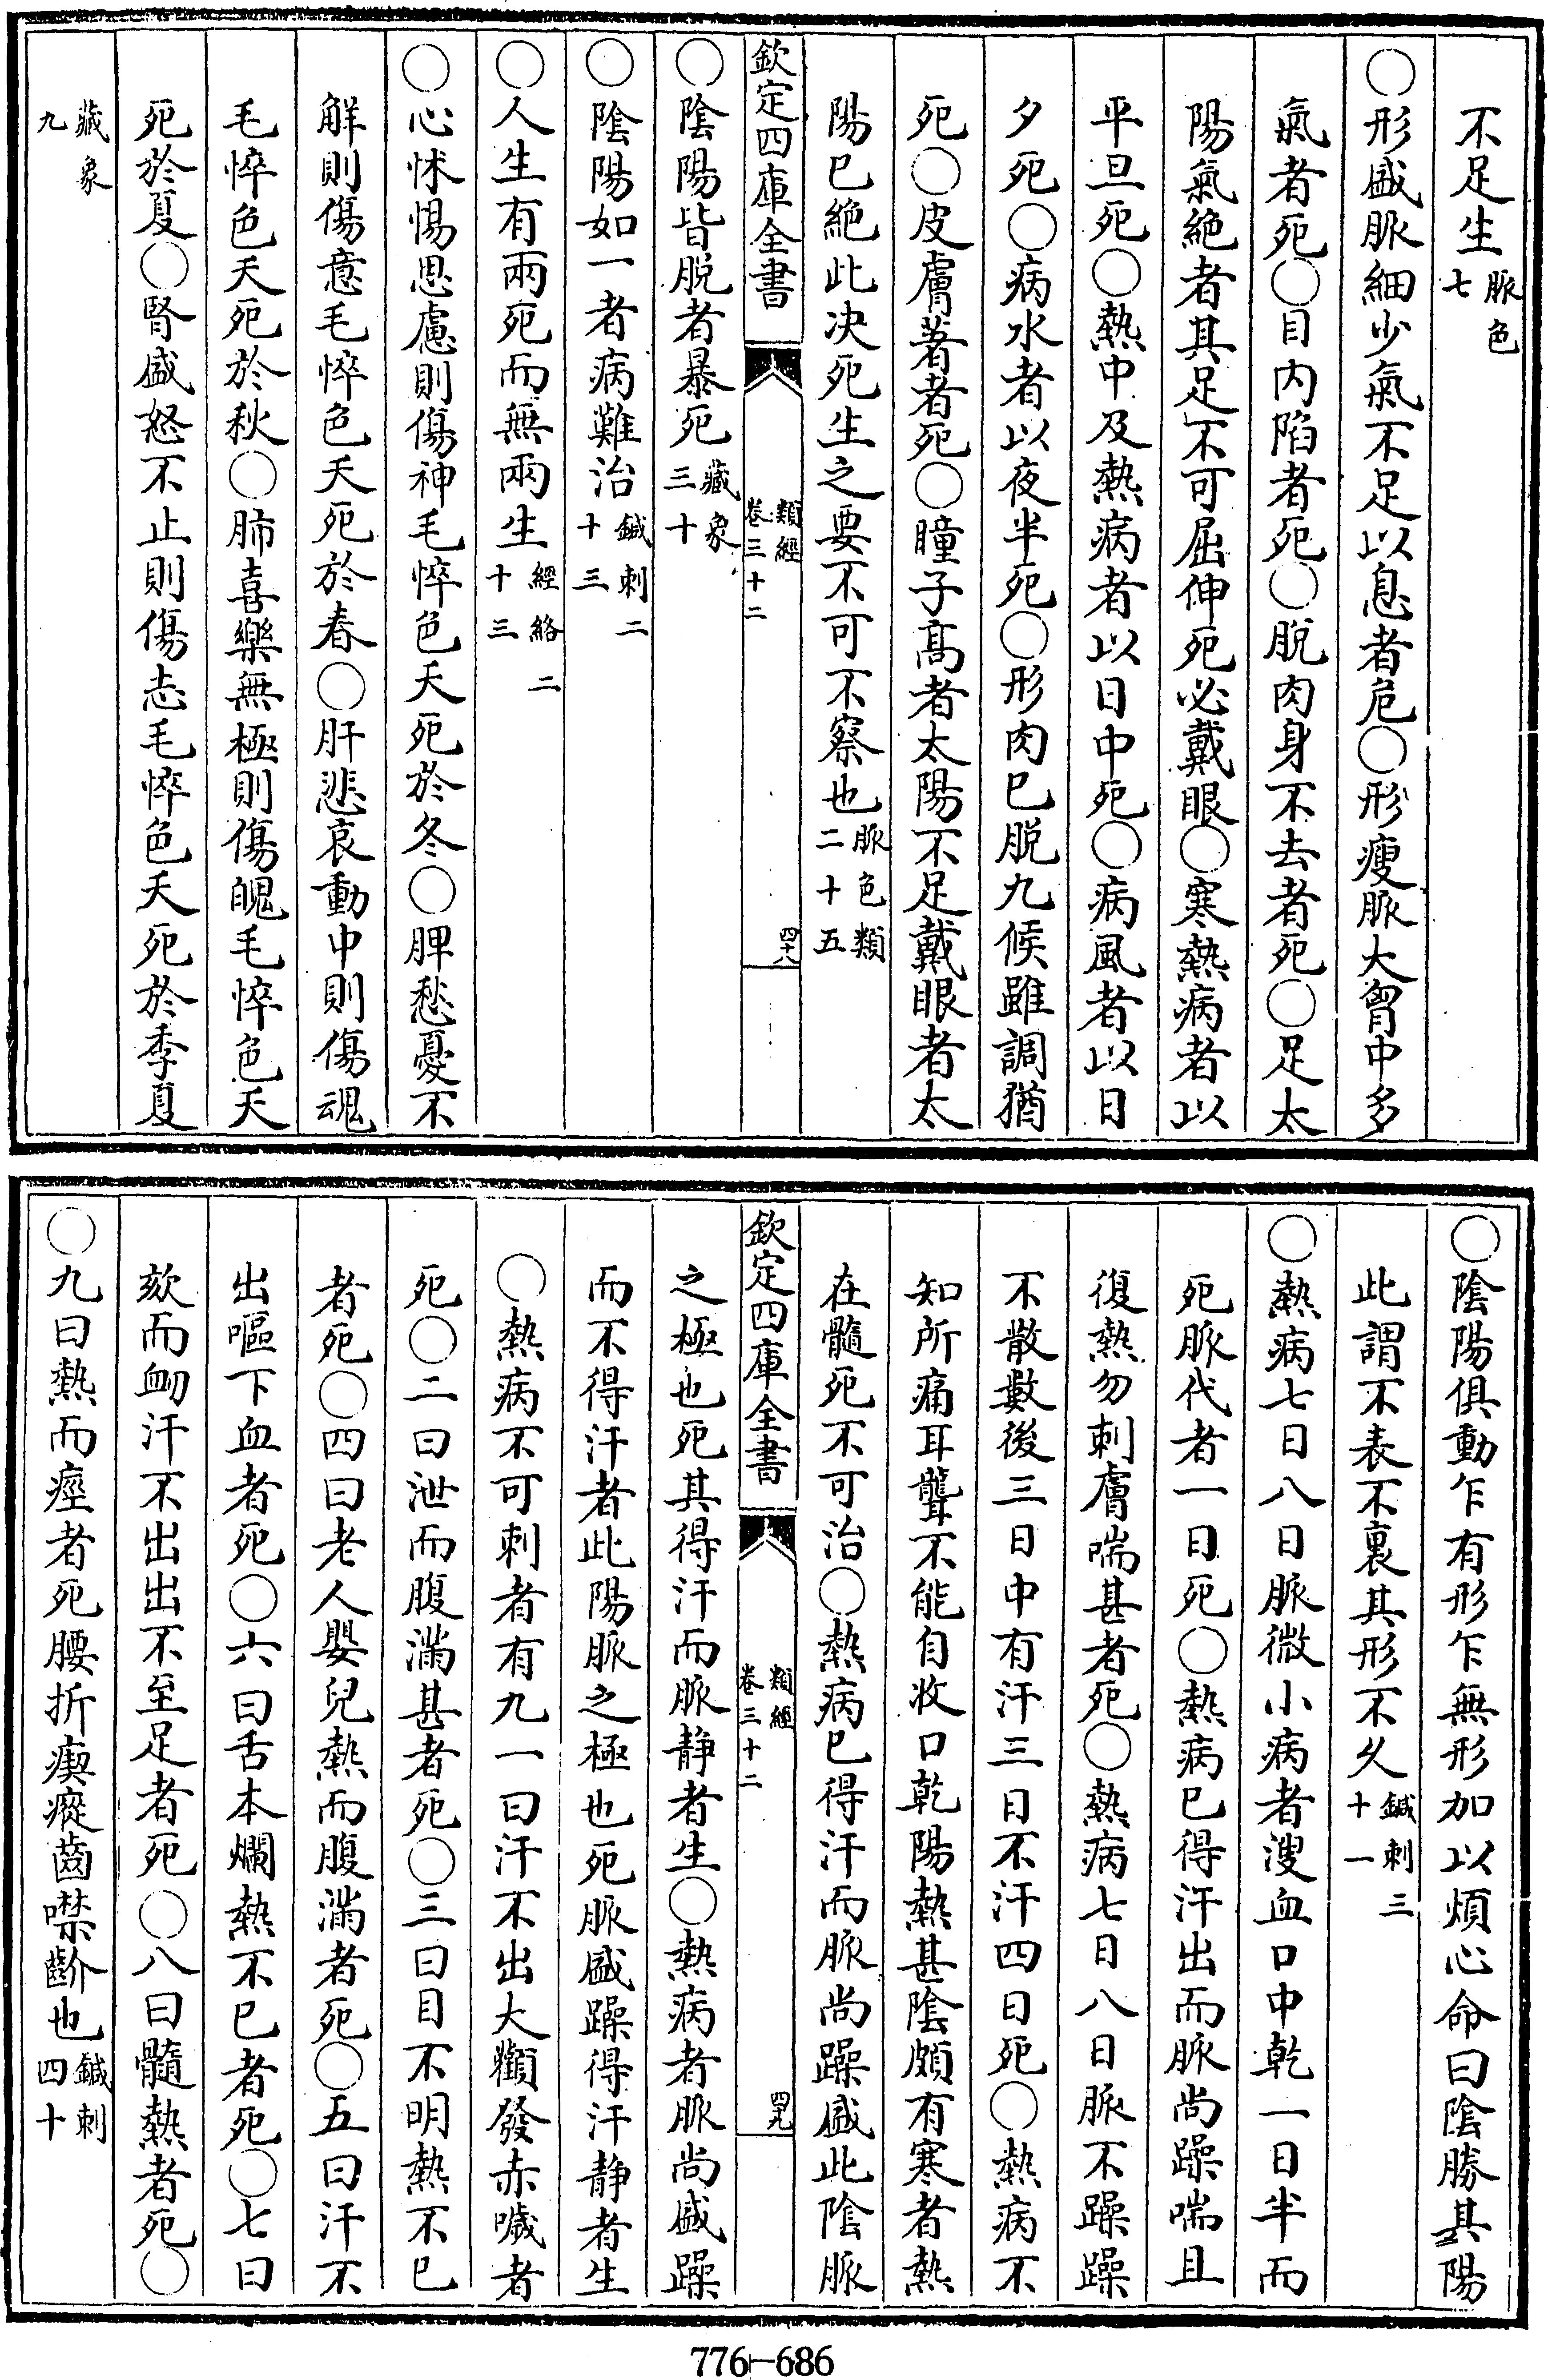 不足生脈色七
○形盛脈細少氣不足以息者危○形瘦脈大胷中多
氣者死○目内陷者死○脫肉身不去者死○足太
陽氣絶者其足不可屈伸死必戴眼○寒熱病者以
平旦死○熱中及熱病者以日中死○病風者以日
夕死○病水者以夜半死○形肉已脱九候雖調猶
死○皮膚著者死○瞳子髙者太陽不足戴眼者太
陽已絶此决死生之要不可不察也脈色類二十五
欽定四庫全書 類經卷三十二 四十八
○陰陽皆脱者暴死藏象三十
○陰陽如一者病難治鍼刺二十三
○人生有兩死而無兩生經絡二十三
○心怵惕思慮則傷神毛悴色夭死於冬○脾愁憂不
解則傷意毛悴色夭死於春○肝悲哀動中則傷魂
毛悴色夭死於秋○肺喜樂無極則傷魄毛悴色夭
死於夏○腎盛怒不止則傷志毛悴色夭死於季夏
藏象九
○陰陽俱動乍有形乍無形加以煩心命曰陰勝其陽
此謂不表不裏其形不久鍼刺三十一
○熱病七日八日脈微小病者溲血口中乾一日半而
死脈代者一日死○熱病已得汗出而脈尚躁喘且
復熱勿刺膚喘甚者死○熱病七日八日脈不躁躁
不散數後三日中有汗三日不汗四日死○熱病不
知所痛耳聾不能自收口乾陽熱甚陰頗有寒者熱
在髓死不可治○熱病已得汗而脈尚躁盛此陰脈
欽定四庫全書 類經卷三十二 四十九
之極也死其得汗而脈静者生○熱病者脈尚盛躁
而不得汗者此陽脈之極也死脈盛躁得汗静者生
○熱病不可刺者有九一曰汗不出大顴發赤噦者
死○二曰泄而腹滿甚者死○三曰目不明熱不已
者死○四曰老人嬰兒熱而腹滿者死○五曰汗不
出嘔下血者死○六曰舌本爛熱不已者死○七曰
欬而衂汗不出出不至足者死○八曰髓熱者死○
○九曰熱而痙者死腰折瘈瘲齒噤齘也鍼刺四十
776-686